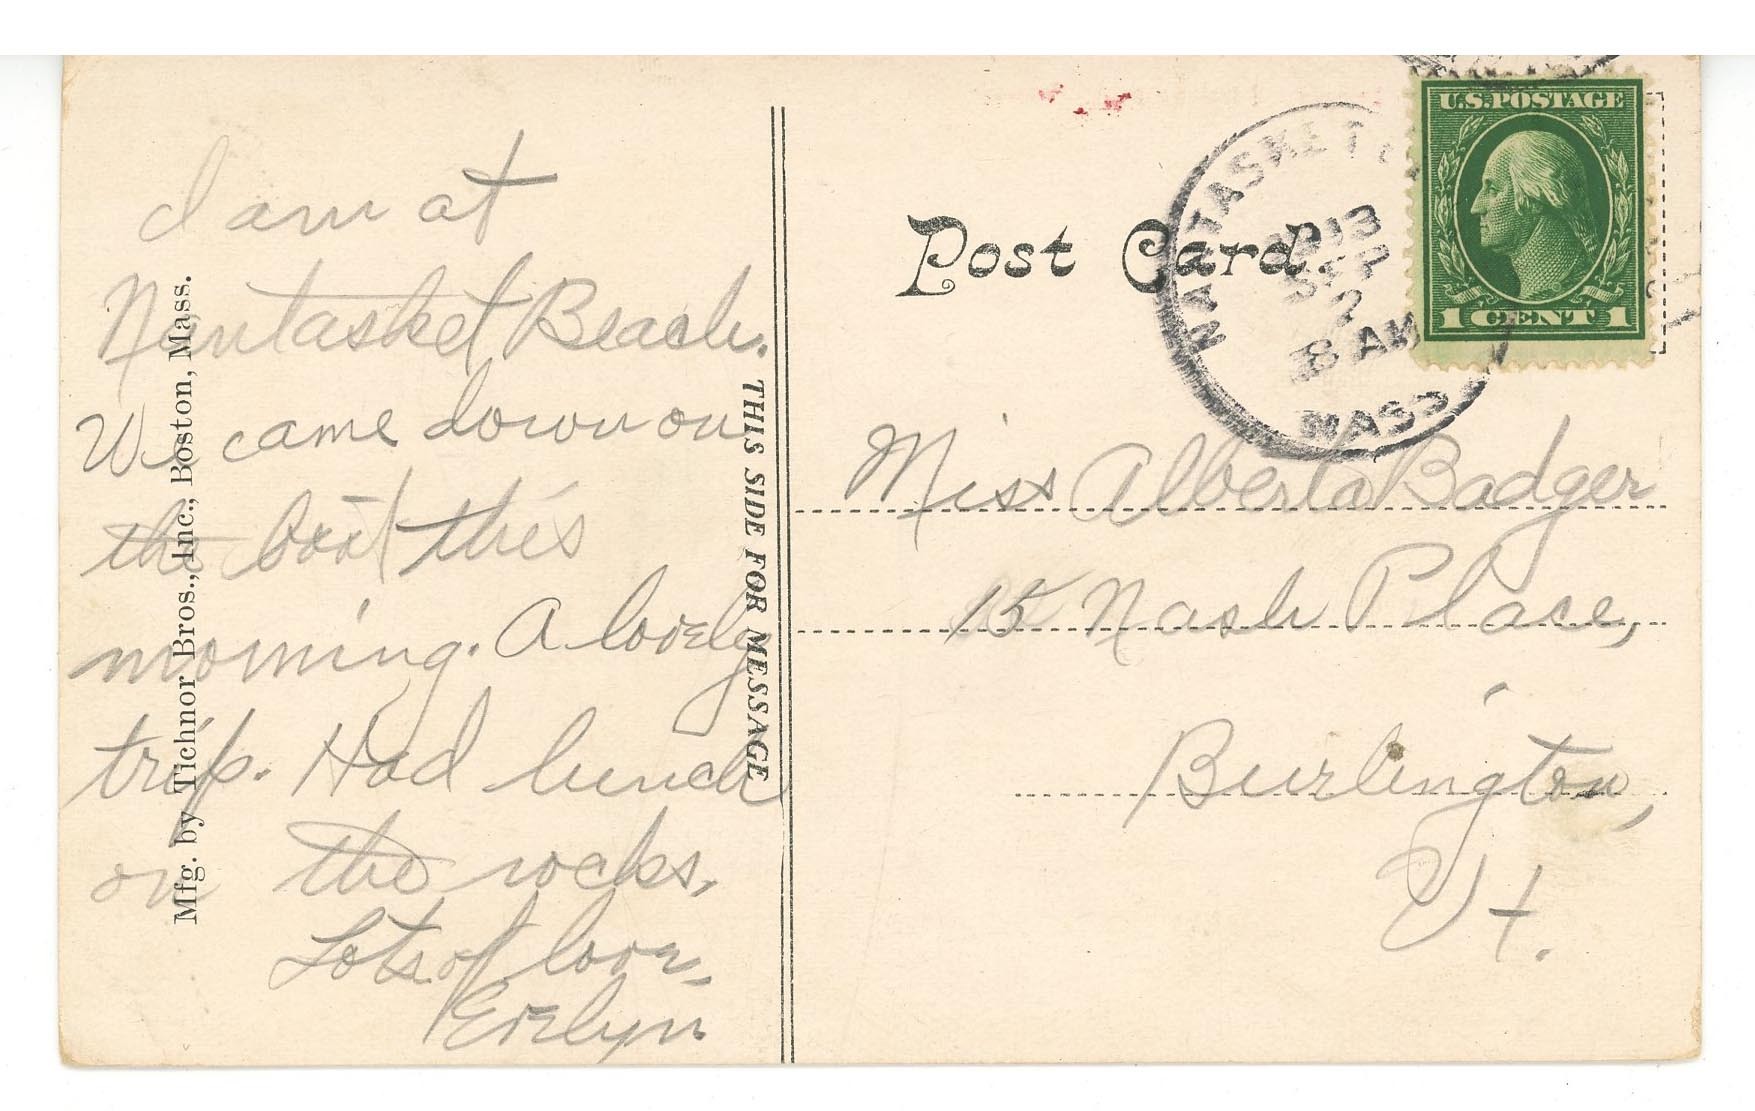 I am at
Nantasket Beach.
We came down on
the boat this
morning. A lovely
trip. Had lunch
on the rocks,
Lots of love,
Evelyn.
Mfg. by Tichnor Bros., Inc., Boston, Mass.
THIS SIDE FOR MESSAGE
Post Card
NANTASKET
1913
SEP
2
8 AM
MASS
U.S. POSTAGE
1 CENT 1
Miss Alberta Badger
15 Nash Place,
Burlington,
Vt.